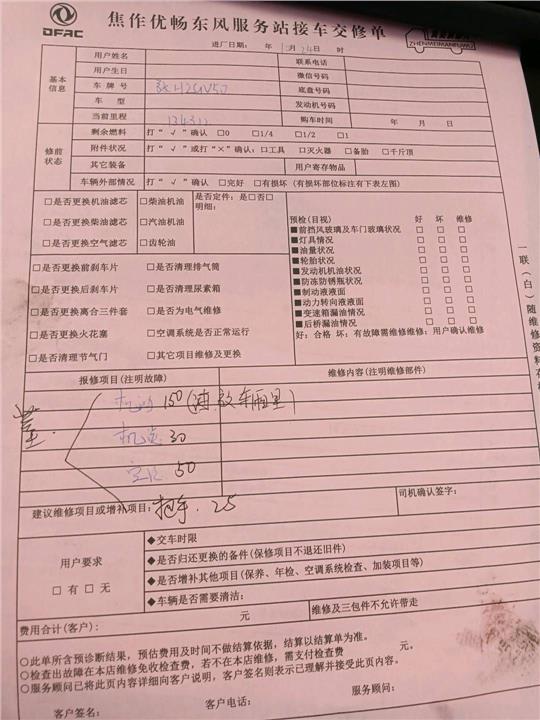 DFAC
焦作优畅东风服务站接车交修单
ZHENMEIMANEUWU
进厂日期: 年 月24日 时
基本信息
用户姓名 联系电话
用户生日 微信号码
车牌号 底盘号码
车 型 发动机号码
当前里程 购车时间 年 月 日
修前状态
剩余燃料 打“√”确认 □0 □1/4 □1/2 □1
附件状况 打“√”或打“×”确认: □工具 □灭火器 □备胎 □千斤顶
其它装备 用户寄存物品
车辆外部情况 打“√”确认 □完好 □有损坏 (有损坏部位标注有下表左图)
□是否更换机油滤芯 □柴油机油 是否定件: □是□否□
□是否更换柴油滤芯 □汽油机油 明细:
□是否更换空气滤芯 □齿轮油
□是否更换前刹车片 □是否清理排气筒
□是否更换后刹车片 □是否清理尿素箱
□是否更换离合三件套 □是否为电气维修
□是否更换火花塞 □空调系统是否正常运行
□是否清理节气门 □其它项目维修及更换
预检(目视) 好 坏 维修
■前挡风玻璃及车门玻璃状况 □ □ □
■灯具情况 □ □ □
■油量状况 □ □ □
■轮胎状况 □ □ □
■发动机机油状况 □ □ □
■防冻防锈瓶状况 □ □ □
■制动液液面 □ □ □
■动力转向液液面 □ □ □
■变速箱漏油情况 □ □ □
■后桥漏油情况 □ □ □
好: 合格 坏: 有故障需维修维修: 用户确认维修
一联(白)随维修资料存
报修项目(注明故障) 维修内容(注明维修部件)
150
30
50
建议维修项目或增补项目: 把手. 25
司机确认签字:
用户要求
□有 □无
◆交车时限
◆是否归还更换的备件(保修项目不退还旧件)
◆是否增补其他项目(保养、年检、空调系统检查、加装项目等)
◆车辆是否需要清洁:
费用合计(客户): 元 维修及三包件不允许带走
○此单所含预诊断结果, 预估费用及时间不做结算依据, 结算以结算单为准。
○检查出故障在本店维修免收检查费, 若不在本店维修, 需支付检查费 元。
○服务顾问已将此页内容详细向客户说明, 客户签名则表示已理解并接受此页内容。
客户签名: 客户电话: 服务顾问: